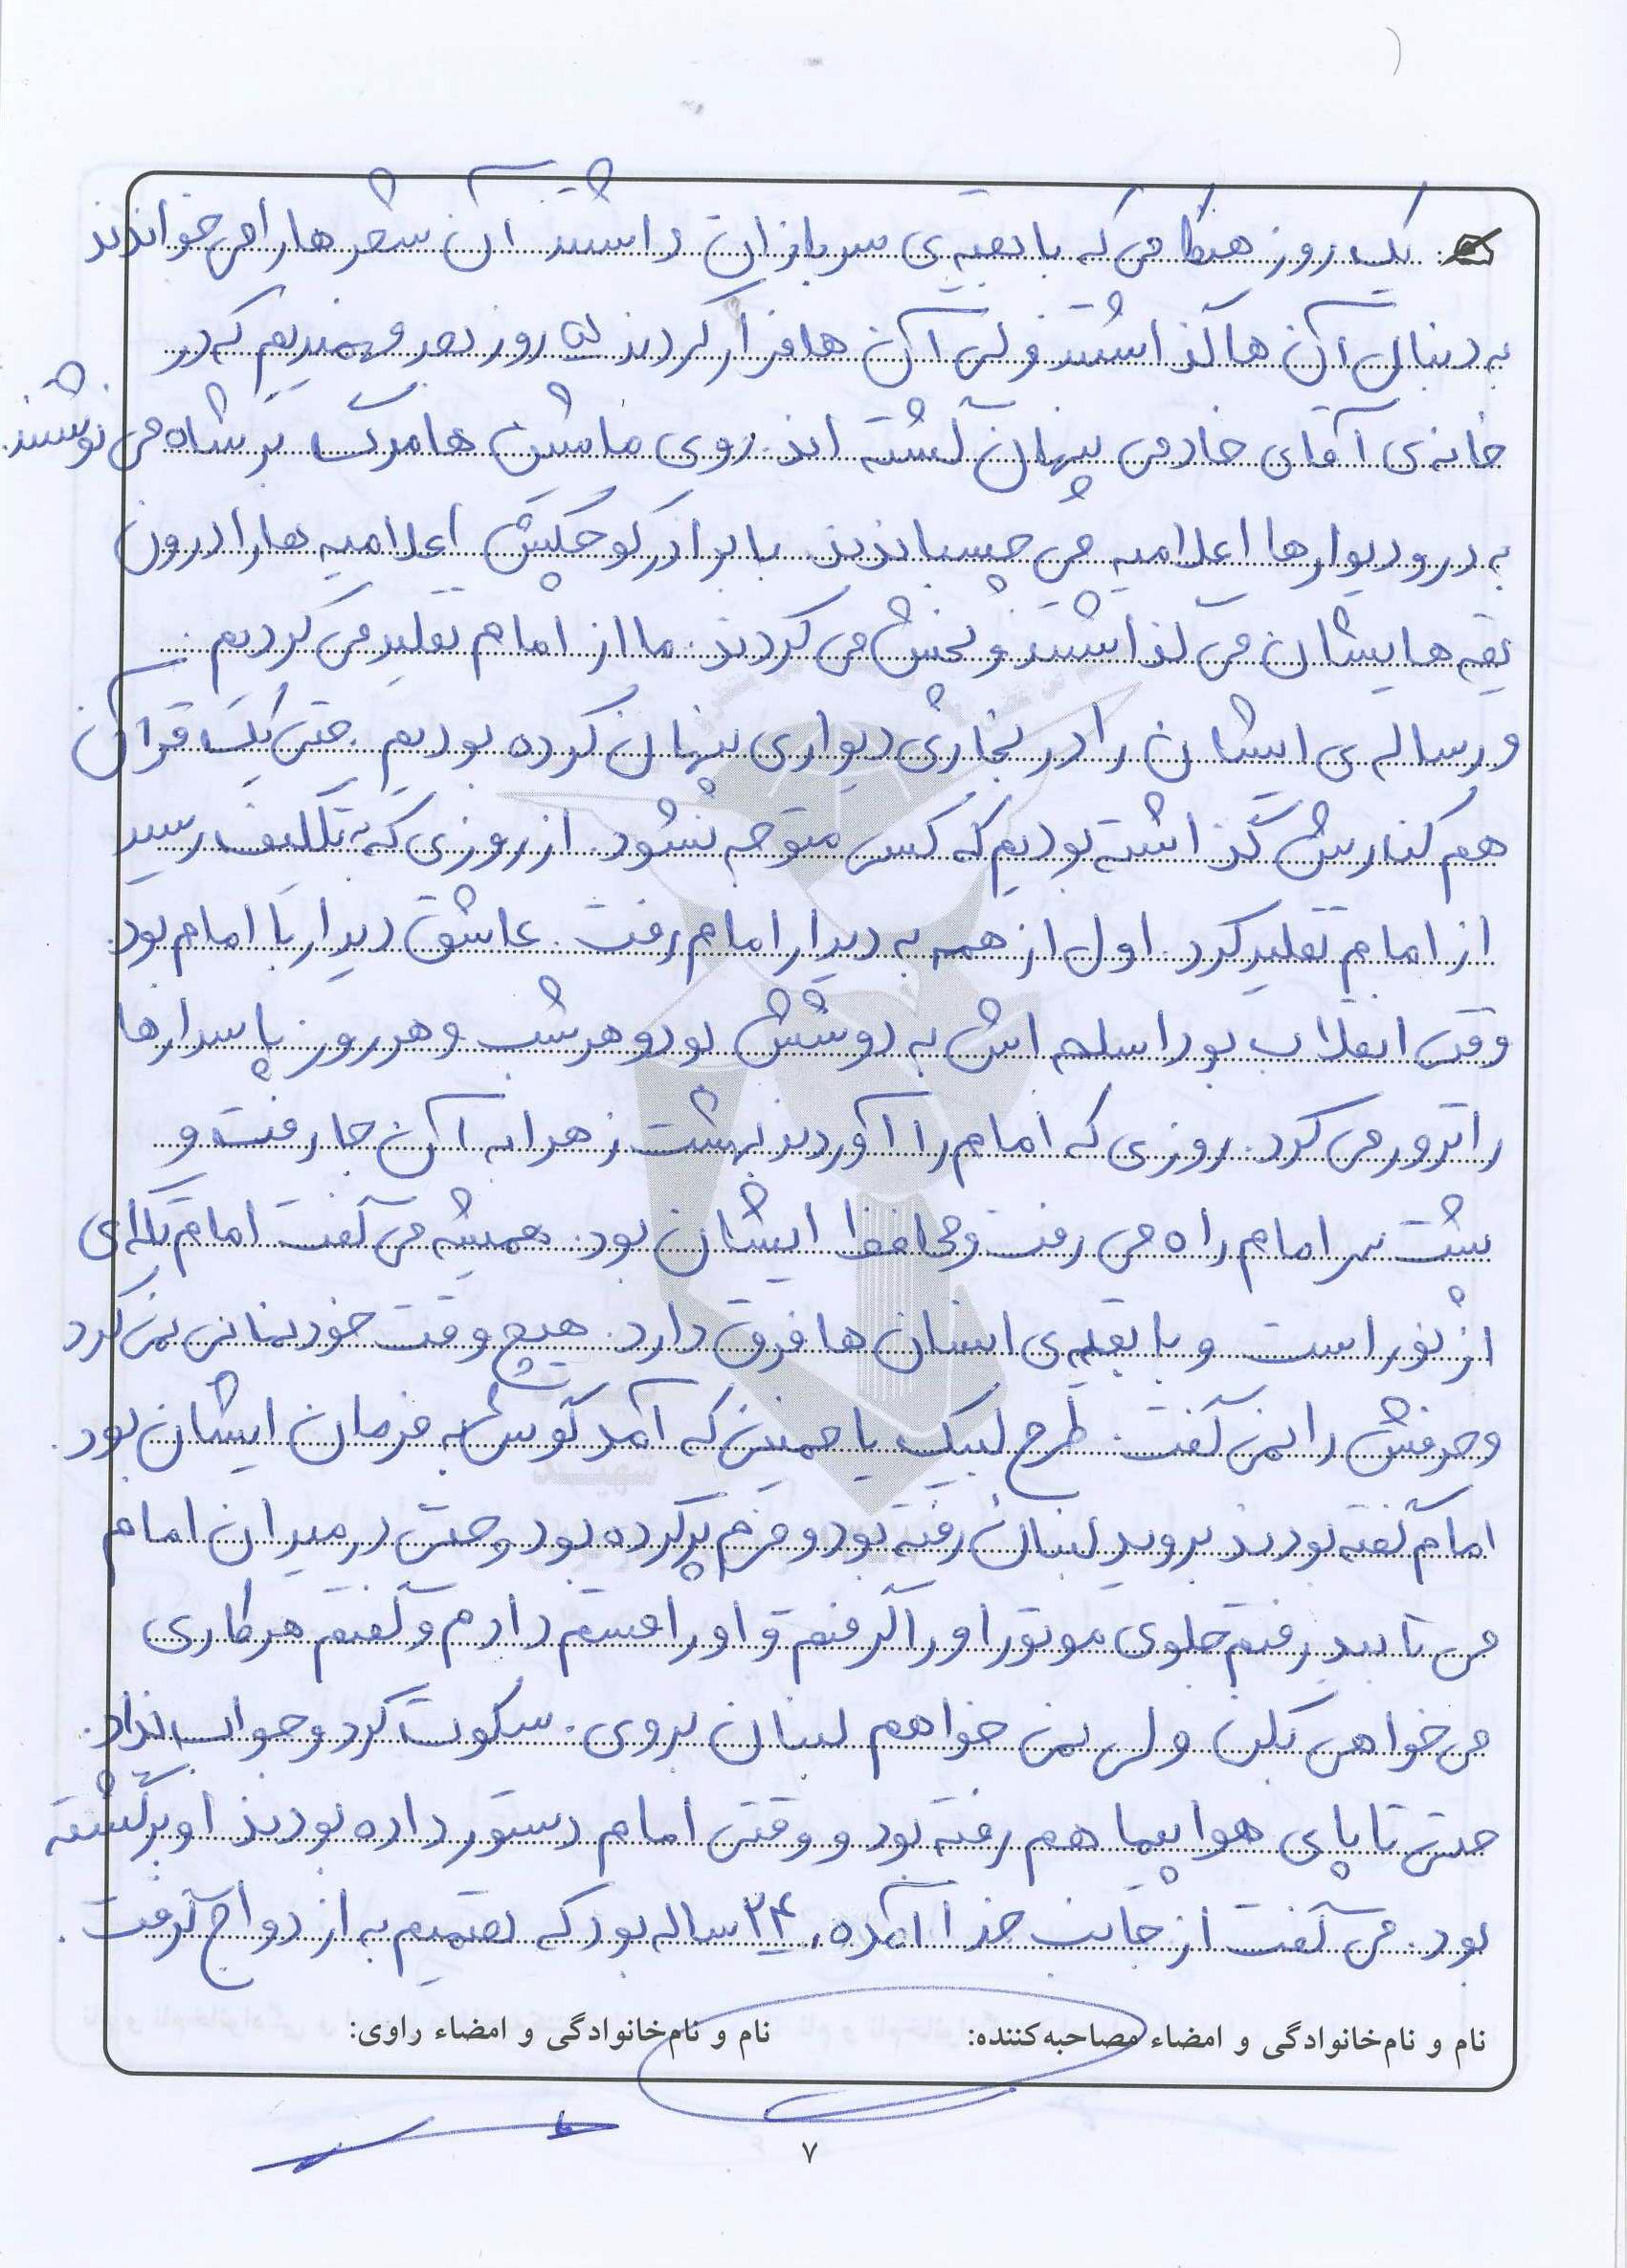 یک روز هنگامی که با بقیه‌ی سربازان داشتند آن شعر ها را می خواندند
به دنبال آن ها گذاشتند ولی آن ها فرار کردند ۵ روز بعد فهمیدیم که در
خانه‌ی آقای خادمی پنهان گشته اند. روی ماشین ها مرگ بر شاه می نوشتند.
به در و دیوارها اعلامیه می چسباندند. با برادر کوچکش اعلامیه ها را درون
یقه هایشان می گذاشتند و پخش می کردند. ما از امام تقلید می کردیم.
و رساله ی ایشان را در بخاری دیواری پنهان کرده بودیم. حتی یک قرآن
هم کنارش گذاشته بودیم که کسی متوجه نشود. از روزی که به تکلیف رسید
از امام تقلید کرد. اول از همه به دیدار امام رفت. عاشق دیدار با امام بود.
وقتی انقلاب بود اسلحه اش به دوشش بود و هر شب و هر روز پاسدارها
را ترور می کرد. روزی که امام را آوردند بهشت زهرا به آن جا رفت و
پشت سر امام راه می رفت و محافظ ایشان بود. همیشه می گفت امام تکه ای
از نور است و با بقیه ی انسان ها فرق دارد. هیچ وقت خودنمایی نمی کرد
و حرفش را نمی گفت. طرح لبیک یا خمینی که آمد گوش به فرمان ایشان بود.
امام گفته بودند بروید لبنان رفته بود و فرم پر کرده بود وحتی در میدان امام
می تابید رفتم جلوی موتور او را گرفتم و او را قسم دادم و گفتم هر کاری
می خواهی بکن ولی نمی خواهم لبنان بروی. سکوت کرد و جواب نداد.
حتی تا پای هواپیما هم رفته بود و وقتی امام دستور داده بودند او برگشته
بود. می گفت از جانب خدا آمده. ۲۴ ساله بود که تصمیم به ازدواج گرفت.
نام و نام‌خانوادگی و امضاء مصاحبه‌کننده: نام و نام‌خانوادگی و امضاء راوی:
۷